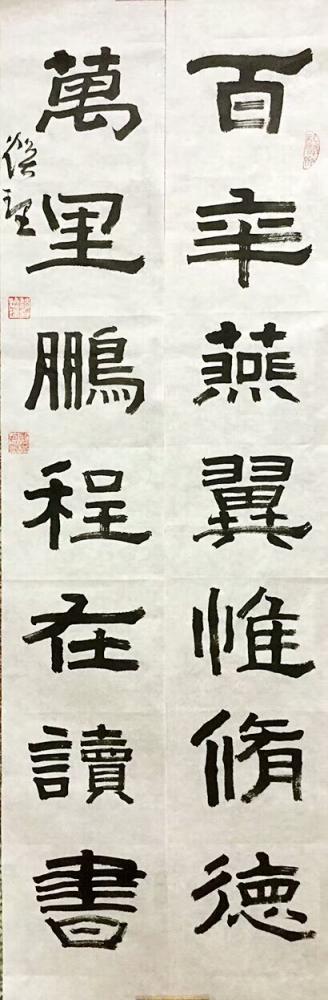 百年燕翼惟脩德
萬里鵬程在讀書